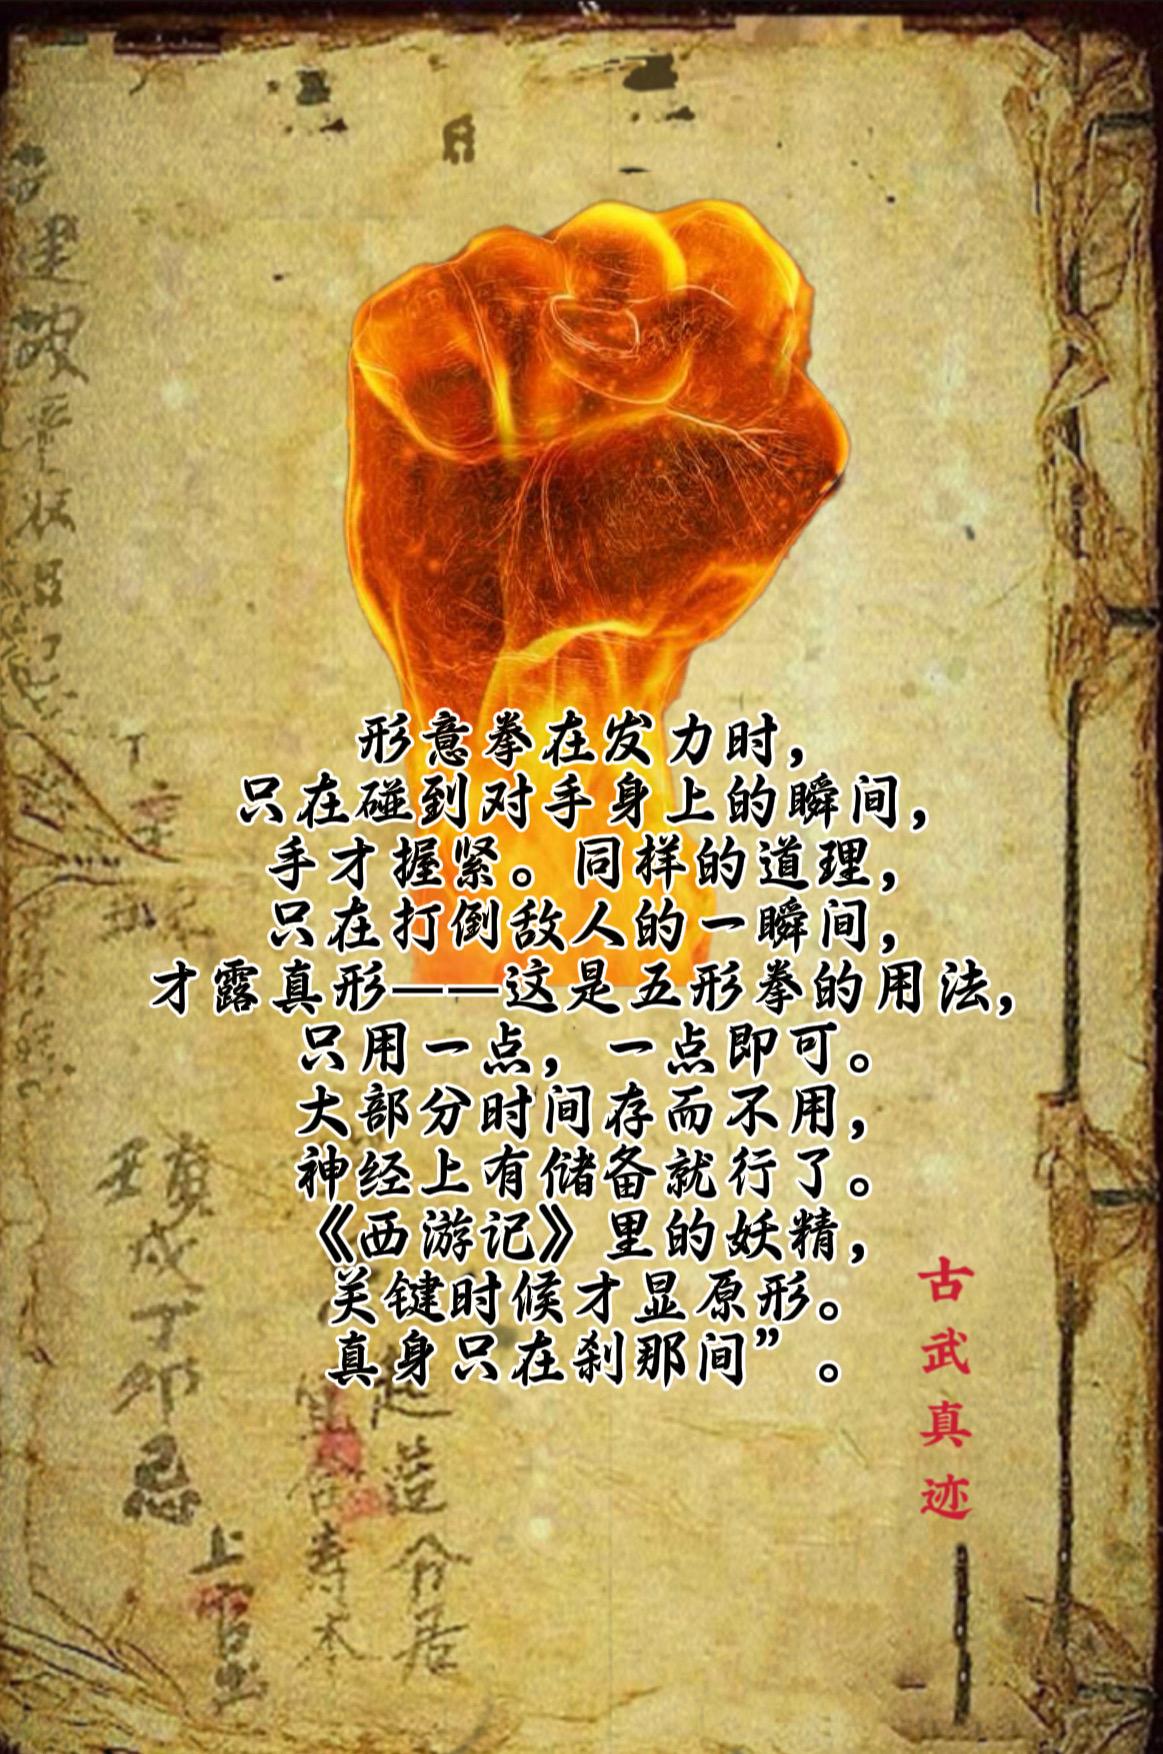 形意拳在发力时，
只在碰到对手身上的瞬间，
手才握紧。同样的道理，
只在打倒敌人的一瞬间，
才露真形——这是五形拳的用法，
只用一点，一点即可。
大部分时间存而不用，
神经上有储备就行了。
《西游记》里的妖精，
关键时候才显原形。
真身只在刹那间”。
古武真迹